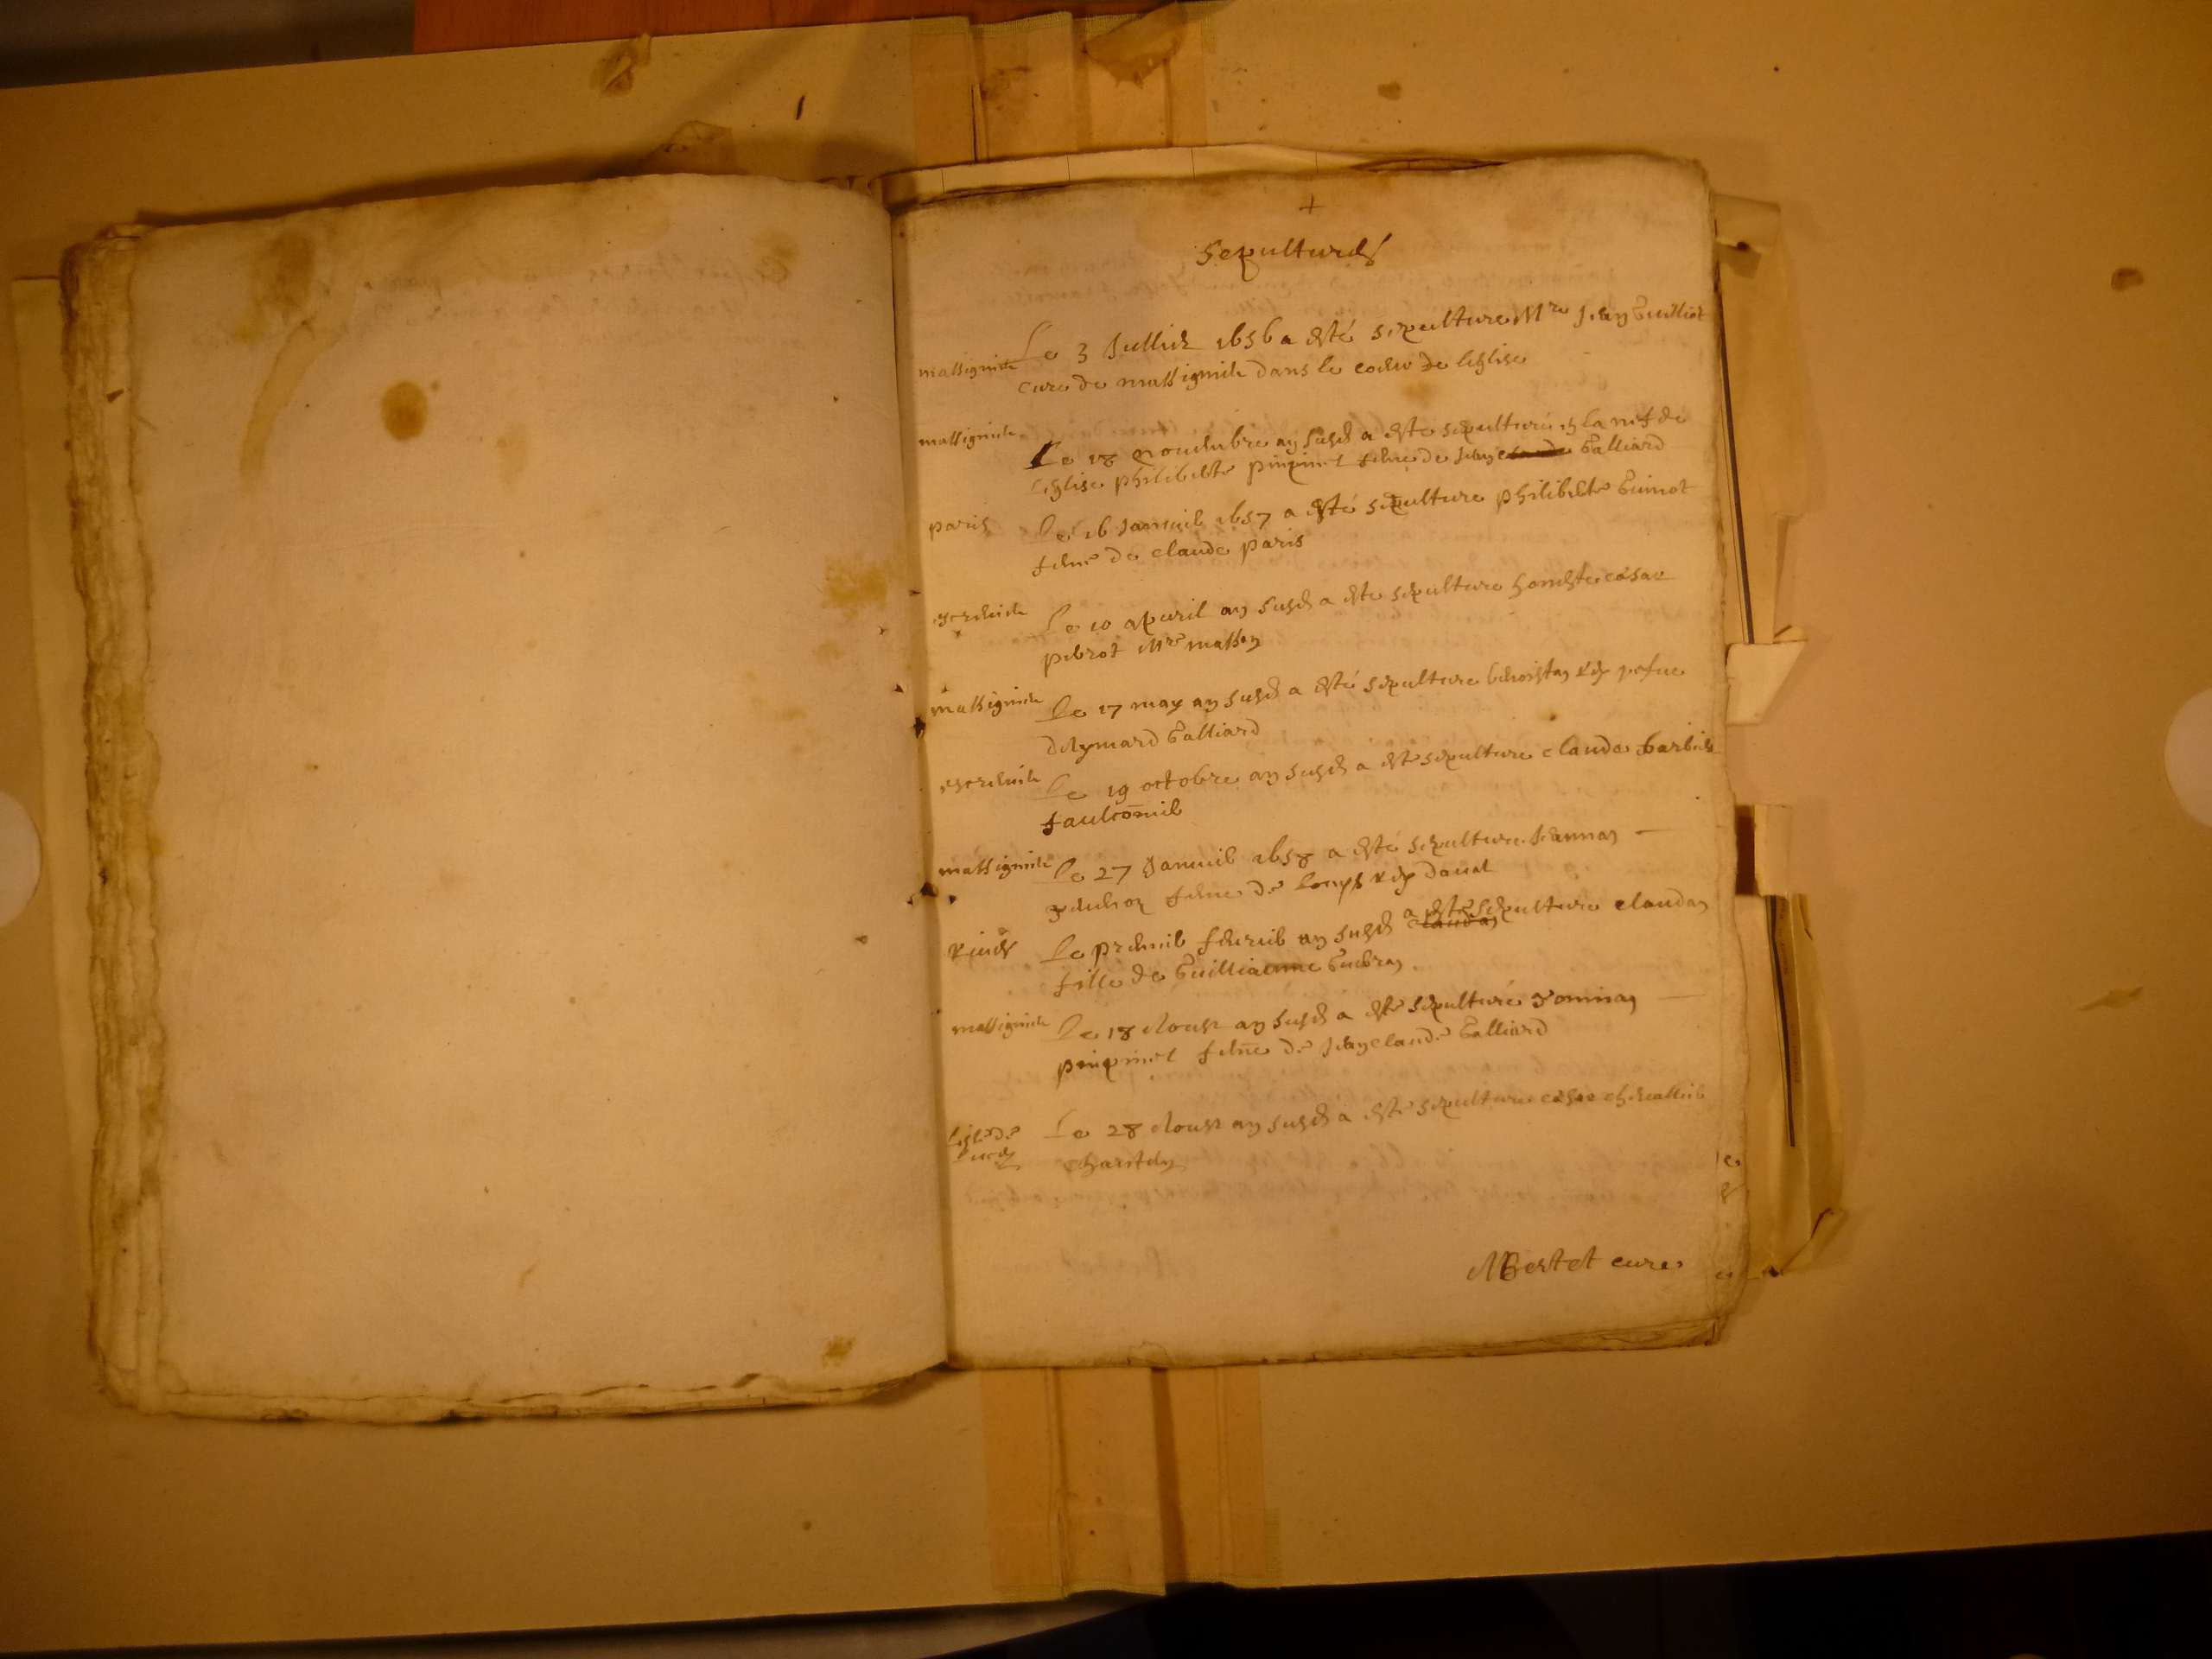 +
Sepultures
massignieu Le 3 Jullier 1656 a esté sepulture Mre Jean Guilliot
cure de massignieu dans le coeur de leglise
massignieu Le 18 novembre an susd a este sepulturé en la nef de
leglise philiberte pinginet feme de Jean claude Galliard
paris Le 16 Janvier 1657 a esté sepulture philiberte Guinot
feme de claude paris
escrivieu Le 10 apvril an susd a este sepulture honeste cesar
perrot Mre masson
massignieu Le 17 may an susd a esté sepulture benoistan rey vefue
deymard Galliard
escrivieu Le 19 octobre an susd a esté sepulture claude barbier
faulconnier
massignieu Le 27 Janvier 1658 a esté sepulture Jeannan
feme de louys rey daval
Le premier febvrier an susd a esté sepulture claudan
fille de Guilliaume
massignieu Le 18 doust an susd a esté sepulturé
pinginet feme de Jean claude Galliard
Le 28 doust an susd a esté sepulture cesar chevallier
MBertet cure